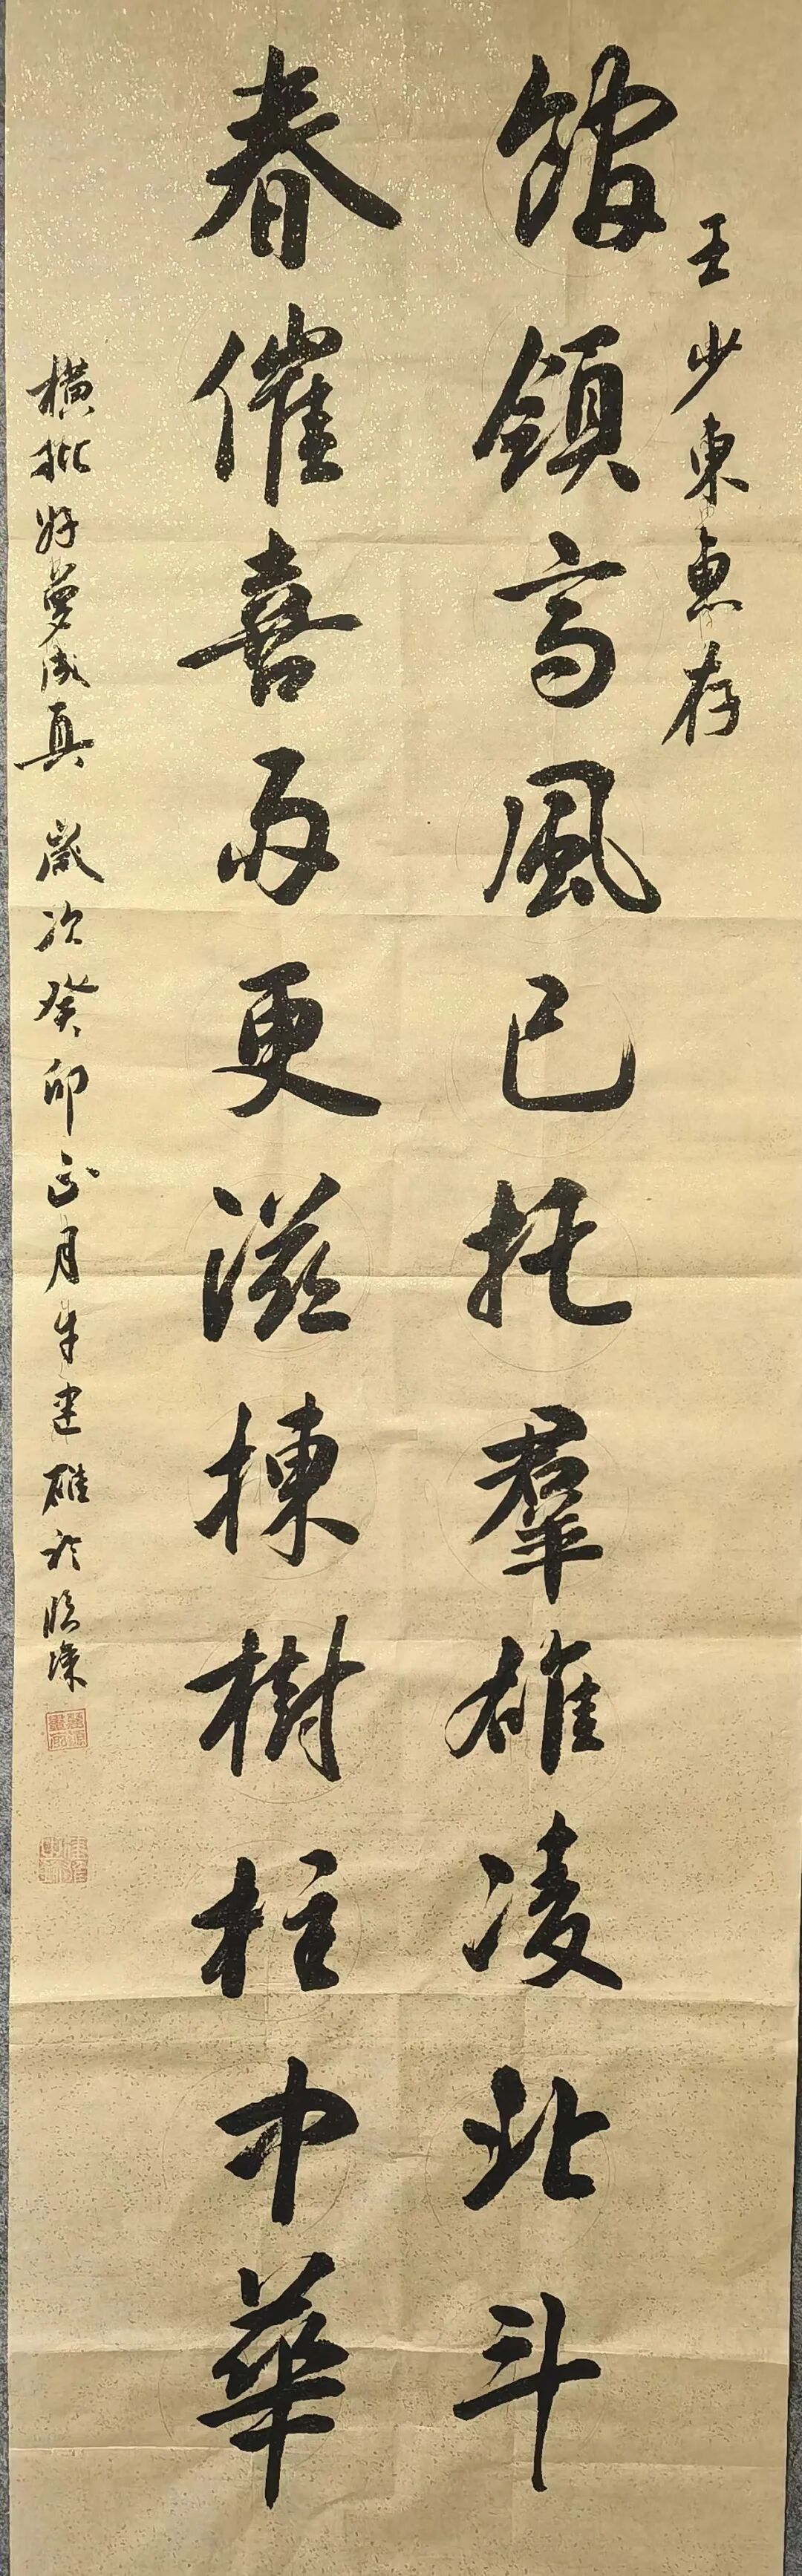 王少東惠存
館領高風已托羣雄凌北斗
春催喜雨更滋棟樹柱中華
橫批好夢成真 歲次癸卯正月牛建雄於臨深